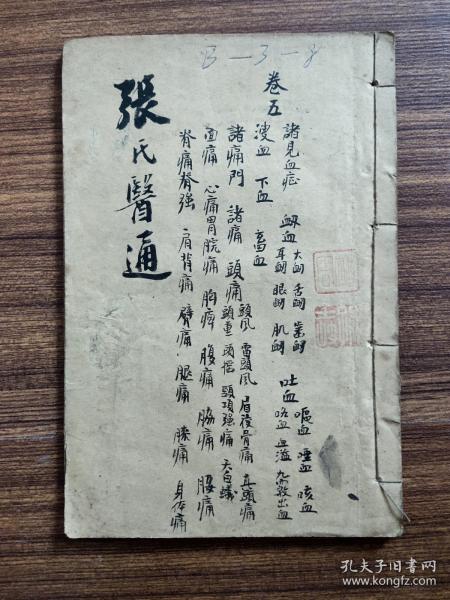 B-3-8
卷五
諸見血症 衄血 大衄 舌衄 齒衄 耳衄 眼衄 肌衄 吐血 嘔血 唾血 咳血 咯血 血溢 九竅出血
溲血 下血 畜血
諸痛門 諸痛 頭痛 頭風 雷頭風 眉稜骨痛 真頭痛 頭重 頭搖 頸項強痛 天白蟻
面痛 心痛胃脘痛 胸痺 腹痛 脇痛 腰痛
脊痛脊強 肩背痛 臂痛 腿痛 膝痛 身体痛
張氏醫通
孔夫子旧书网
www.kongfz.com